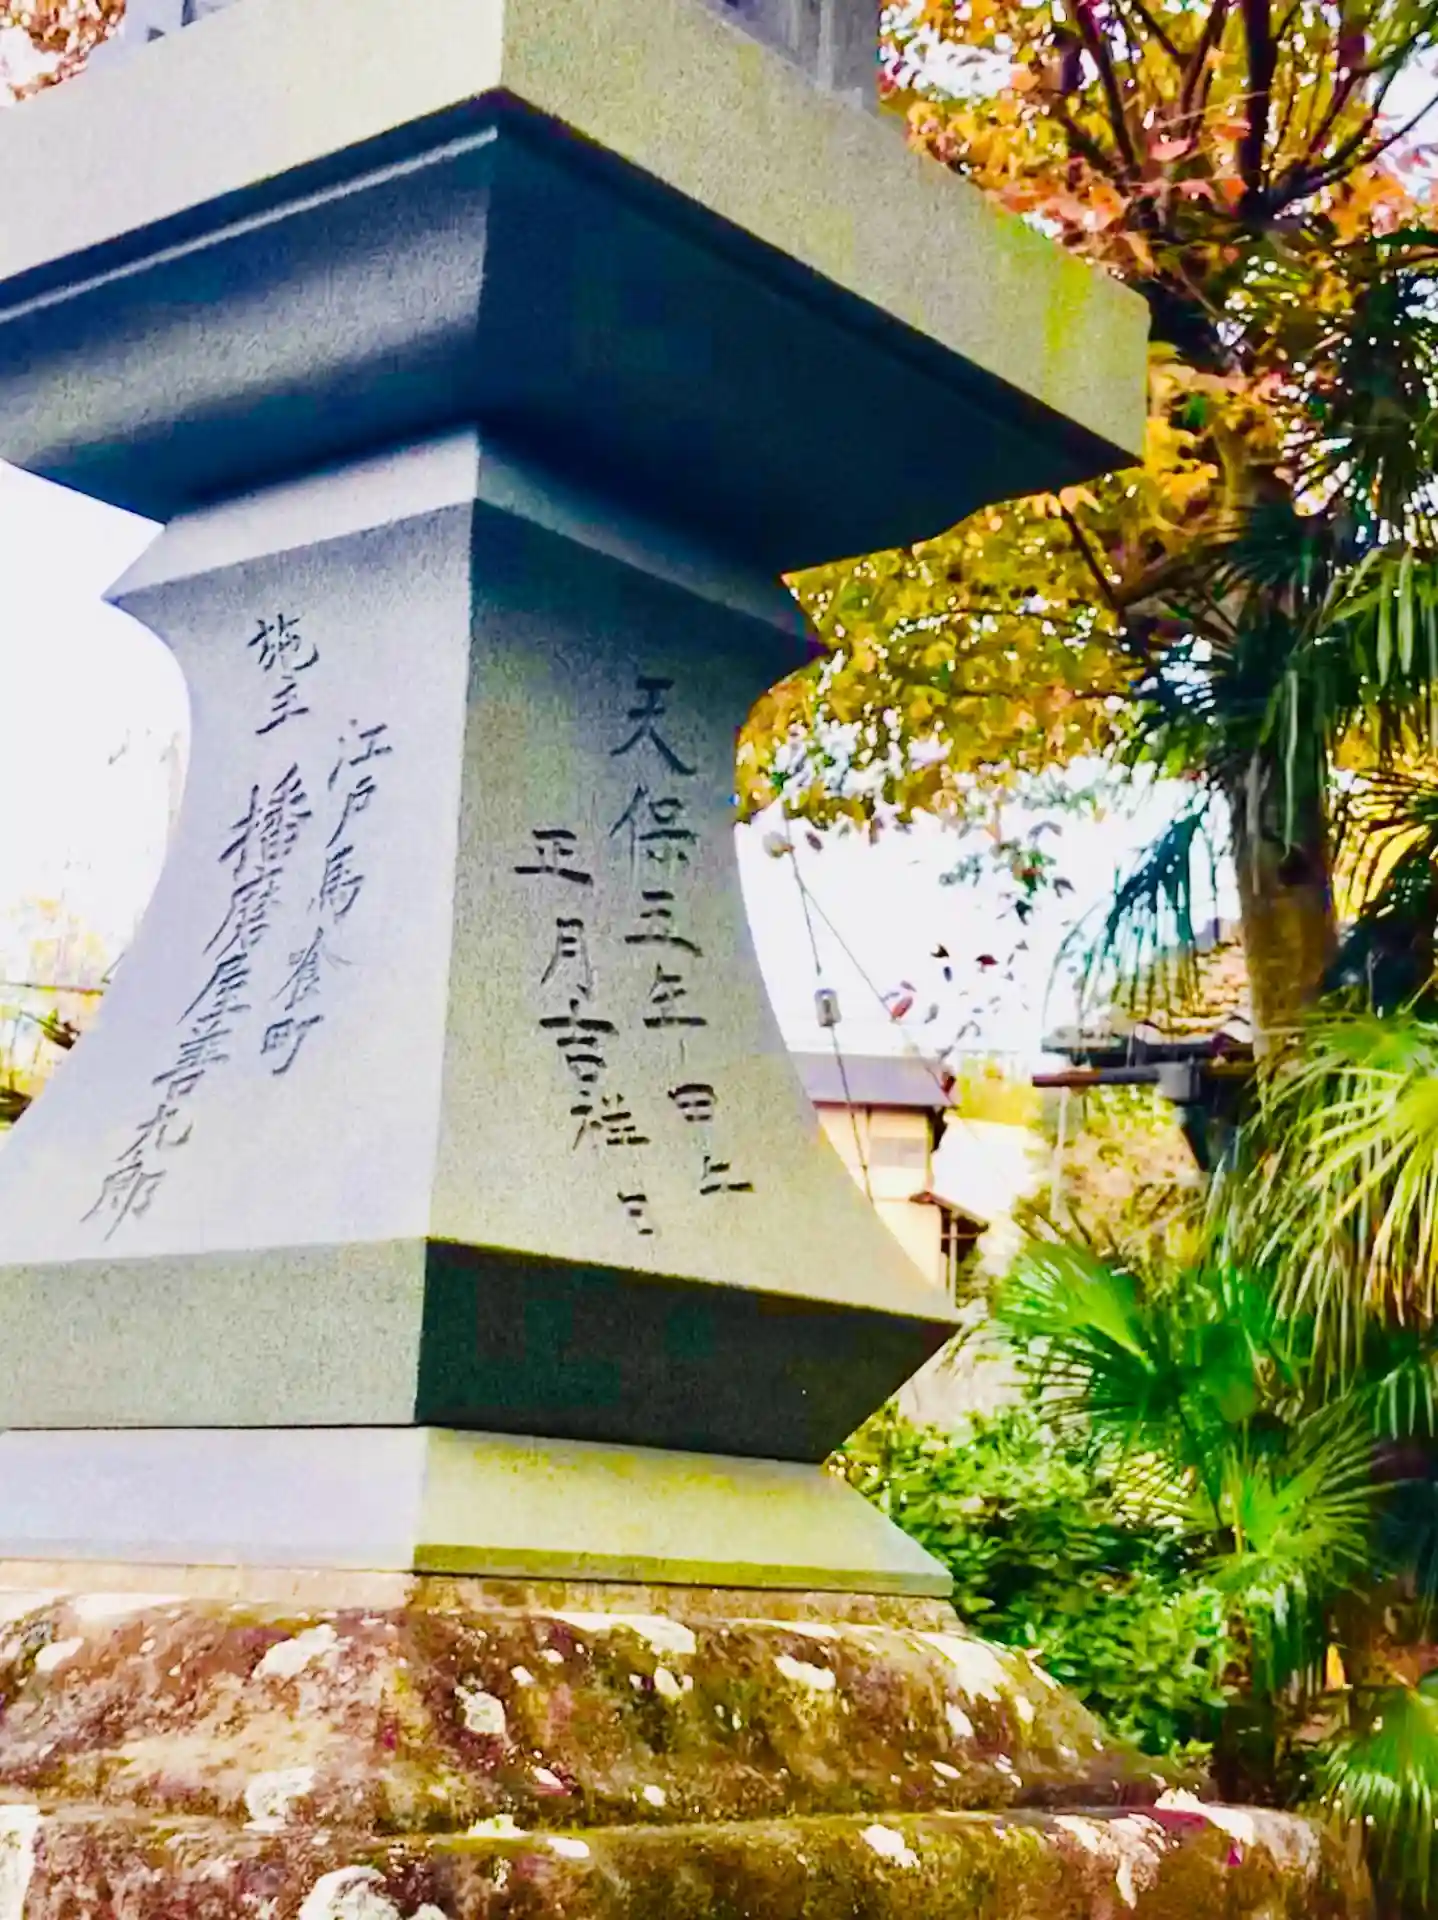 天保三年
正月吉祥日
江戸馬喰町
施主 播磨屋善九郎